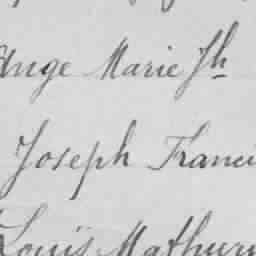 Ange Marie Jh
Joseph Franci
Louis Mathuri